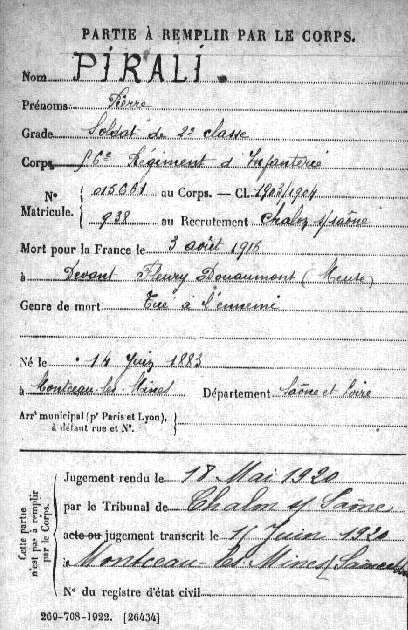 PARTIE À REMPLIR PAR LE CORPS.
Nom PIRALI.
Prénoms Pierre
Grade Soldat de 2e classe
Corps Régiment d'Infanterie
N° Matricule. 015061 au Corps. — Cl. 1903/1904
938 au Recrutement Chalon s/Saône
Mort pour la France le 3 août 1916
à Devant Fleury Douaumont (Meuse)
Genre de mort Tué à l'ennemi
Né le 14 Juin 1883
à Montceau-les-Mines Département Saône et Loire
Arrt municipal (pr Paris et Lyon),
à défaut rue et N°.
Cette partie n'est pas à remplir par le Corps.
Jugement rendu le 18 Mai 1920
par le Tribunal de Chalon s/ Saône
acte ou jugement transcrit le Juin 1920
Montceau les Mines
N° du registre d'état civil
269-708-1922. [26434]